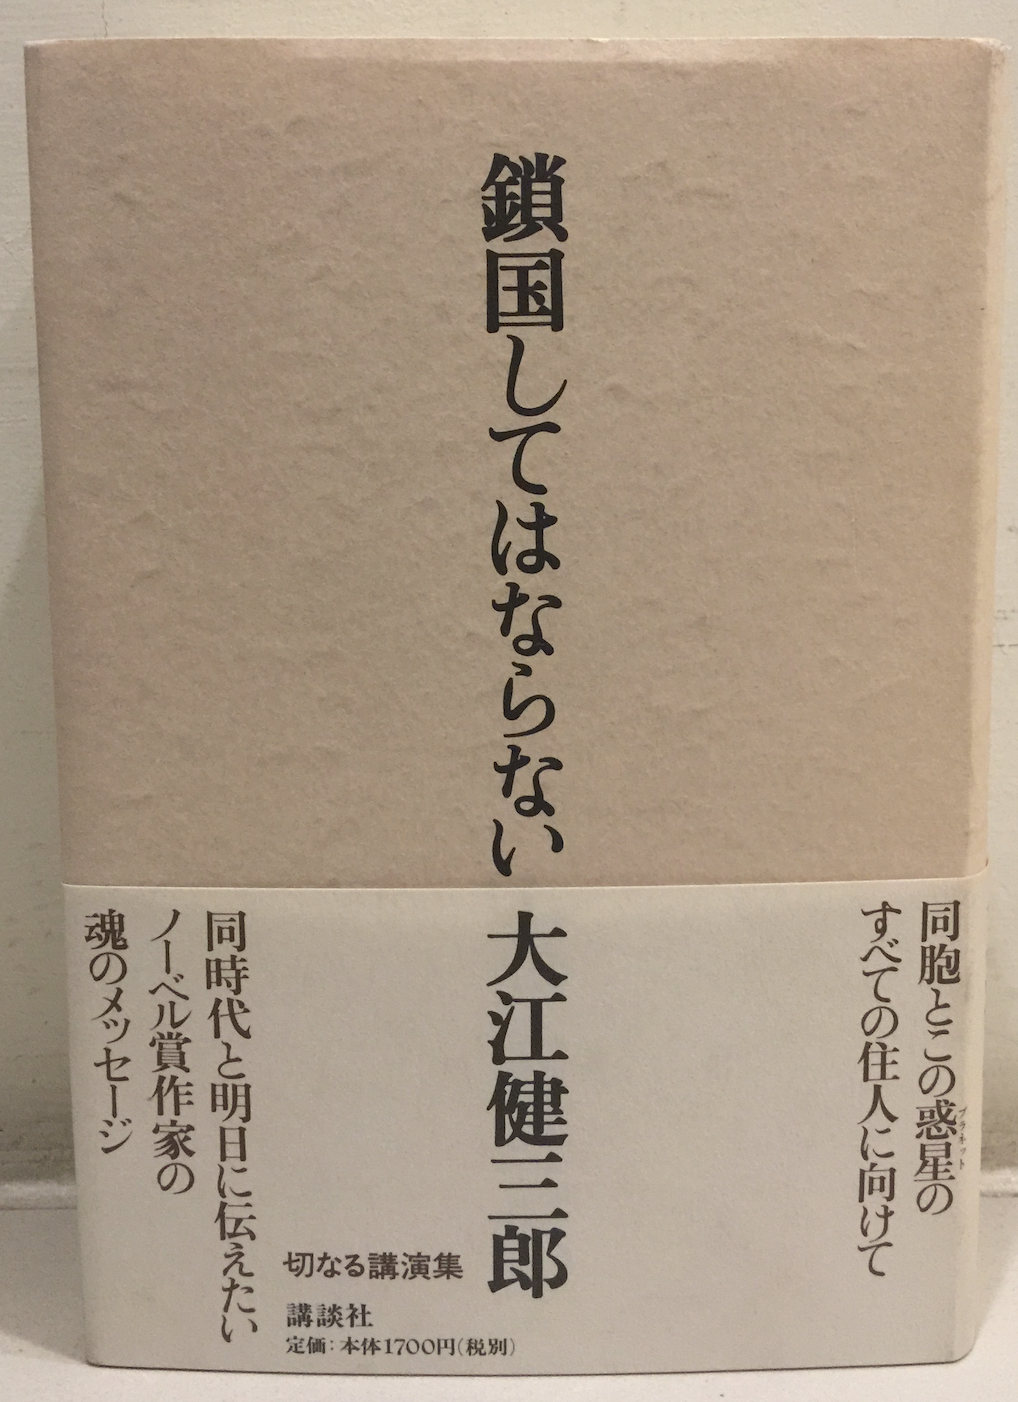 鎖国してはならない
大江健三郎
同胞とこの惑星の
プラネット
すべての住人に向けて
同時代と明日に伝えたい
ノーベル賞作家の
魂のメッセージ
切なる講演集
講談社
定価：本体1700円（税別）